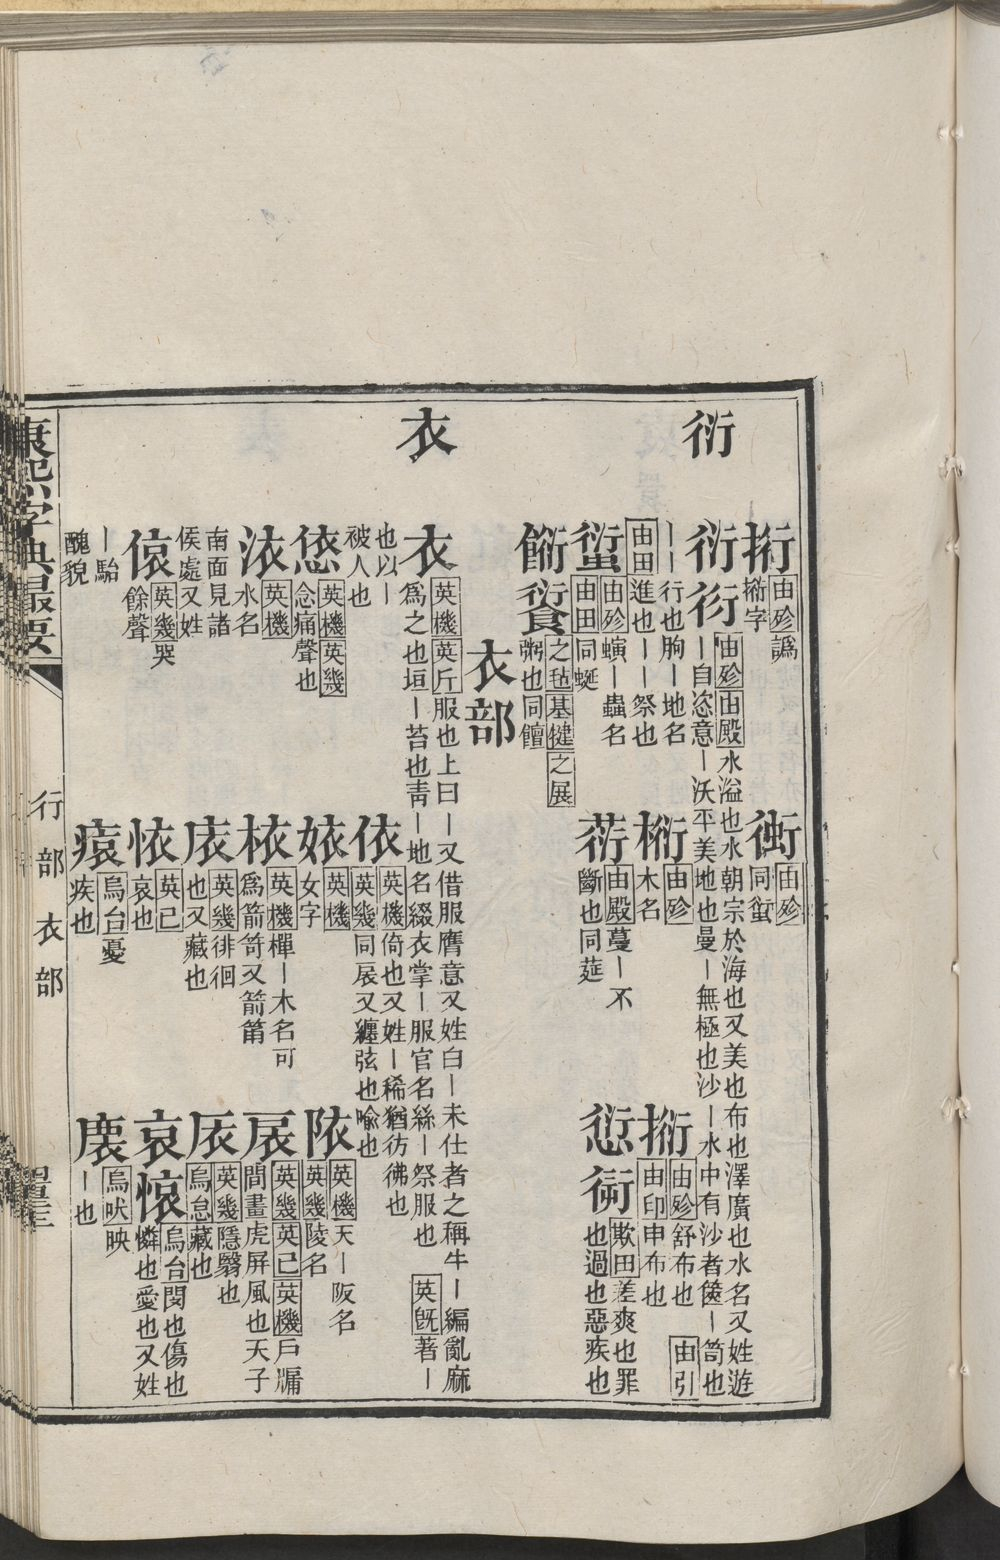 衍
衣
㨔由殄譌㨔字
衝由殄同䖤
衍衍由殄由殿水溢也水朝宗於海也又美也布也澤廣也水名又姓遊
丨自恣意丨沃平美地也曼丨無極也沙丨水中有沙者篋丨笥也
丨丨行也朐丨地名
由田進也丨丨祭也
椼由殄木名
由殄舒布也由引
由印申布也
由殄螾丨蟲名
由田同蜒
葕由殿蔓丨不
斷也同莚
愆𧗸欺田差爽也罪
也過也惡疾也
之𣬠基健之展
粥也同饘
衣部
衣英機英斤服也上曰丨又借服膺意又姓白丨未仕者之稱牛丨編亂麻
爲之也垣丨苔也靑丨地名綴衣掌丨服官名絲丨祭服也英旣著丨
也以丨
被人也
依英機倚也又姓丨稀猶彷彿也
英幾同扆又纏弦也喩也
㥋英機英幾
念痛聲也
㛄英機
女字
陭英機天丨阪名
英幾陵名
浓英機
水名
南面見諸
侯處又姓
椥英機樿丨木名可
爲箭笴又箭筩
扆英幾英己英機戶牖
間畫虎屏風也天子
庡英幾徘徊
也又藏也
㕈英幾隱翳也
烏怠藏也
偯英幾哭
餘聲
㤅英己
哀也
哀㤥烏台閔也傷也
憐也愛也又姓
丨駘
醜貌
㾨烏台憂
疾也
烏吠映
丨也
康熙字典最要
行部衣部